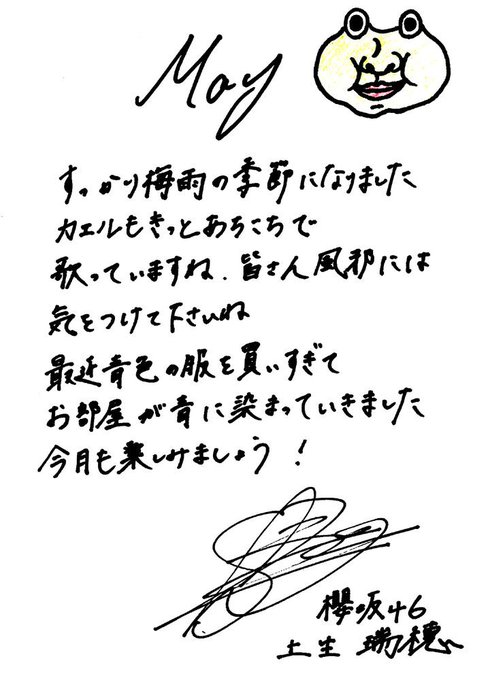 May
すっかり梅雨の季節になりました
カエルもきっとあちこちで
歌っていますね.皆さん風邪には
気をつけて下さいね
最近青色の服を買いすぎて
お部屋が青に染まっていきました
今月も楽しみましょう!
櫻坂46
土生瑞穂